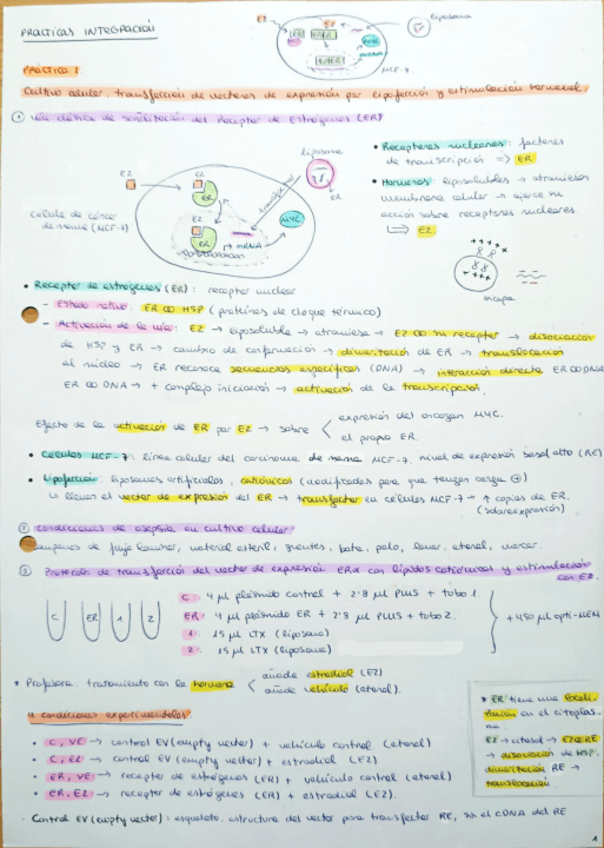 PRACTICAS INTEGRACIÓN
E2
E2
liposoma
ER
MYC
mRNA
MCF-7
PRÁCTICA 1.
Cultivo celular, transfección de vectores de expresión por lipofección y estimulación hormonal.
① Vía clásica de señalización del Receptor de Estrógenos (ER)
• Receptores nucleares: factores
de transcripción => ER
• Hormonas: liposolubles → atraviesan
membrana celular → ejerce su
acción sobre receptores nucleares
E2
E2
E2
ER
E2
ER
mRNA
MYC
liposoma
ER
célula de cáncer
de mama (MCF-7)
• Receptor de estrógenos (ER): receptor nuclear
- Estado nativo: ER ∞ HSP (proteínas de choque térmico)
- Activación de la vía: E2 → liposoluble → atraviesa → E2 ∞ su receptor → disociación
de HSP y ER → cambio de conformación → dimerización de ER → translocación
al núcleo → ER reconoce secuencias específicas (DNA) → interacción directa ER∞DNA
ER ∞ DNA → + complejo iniciación → activación de la transcripción.
Efecto de la activación de ER por E2 → sobre
expresión del oncogen MYC.
el propio ER.
• Células MCF-7: línea celular del carcinoma de mama MCF-7. nivel de expresión basal alto (RE)
• Lipofección: liposomas artificiales, catiónicos (modificados para que tengan carga ⊕)
↳ llevan el vector de expresión del ER → transfectar en células MCF-7 → ↑ copias de ER.
(sobreexpresión)
② Condiciones de asepsia en cultivo celular
campanas de flujo laminar, material estéril, guantes, bata, pelo, lavar, etanol,
③ Protocolo de transfección del vector de expresión ERα con lípidos catiónicos y estimulación
con E2.
C
ER
1
2
C: 4 µl plásmido control + 2'8 µl PLUS + tubo 1.
ER: 4 µl plásmido ER + 2'8 µl PLUS + tubo 2.
1: 15 µl LTX (liposoma)
2: 15 µl LTX (liposoma)
+ 450 µl opti-MEM
* Profesora: tratamiento con la hormona
añade estradiol (E2)
añade vehículo (etanol).
4 condiciones experimentales
• C, VE → control EV (empty vector) + vehículo control (etanol)
• C, E2 → control EV (empty vector) + estradiol (E2)
• ER, VE → receptor de estrógenos (ER) + vehículo control (etanol)
• ER, E2 → receptor de estrógenos (ER) + estradiol (E2).
* ER tiene una locali-
zación en el citoplas-
ma
E2 → citosol → E2∞RE
→ disociación de HSP,
dimerización RE →
translocación
· Control EV (empty vector): esqueleto, estructura del vector para transfectar RE, sin el cDNA del RE
1